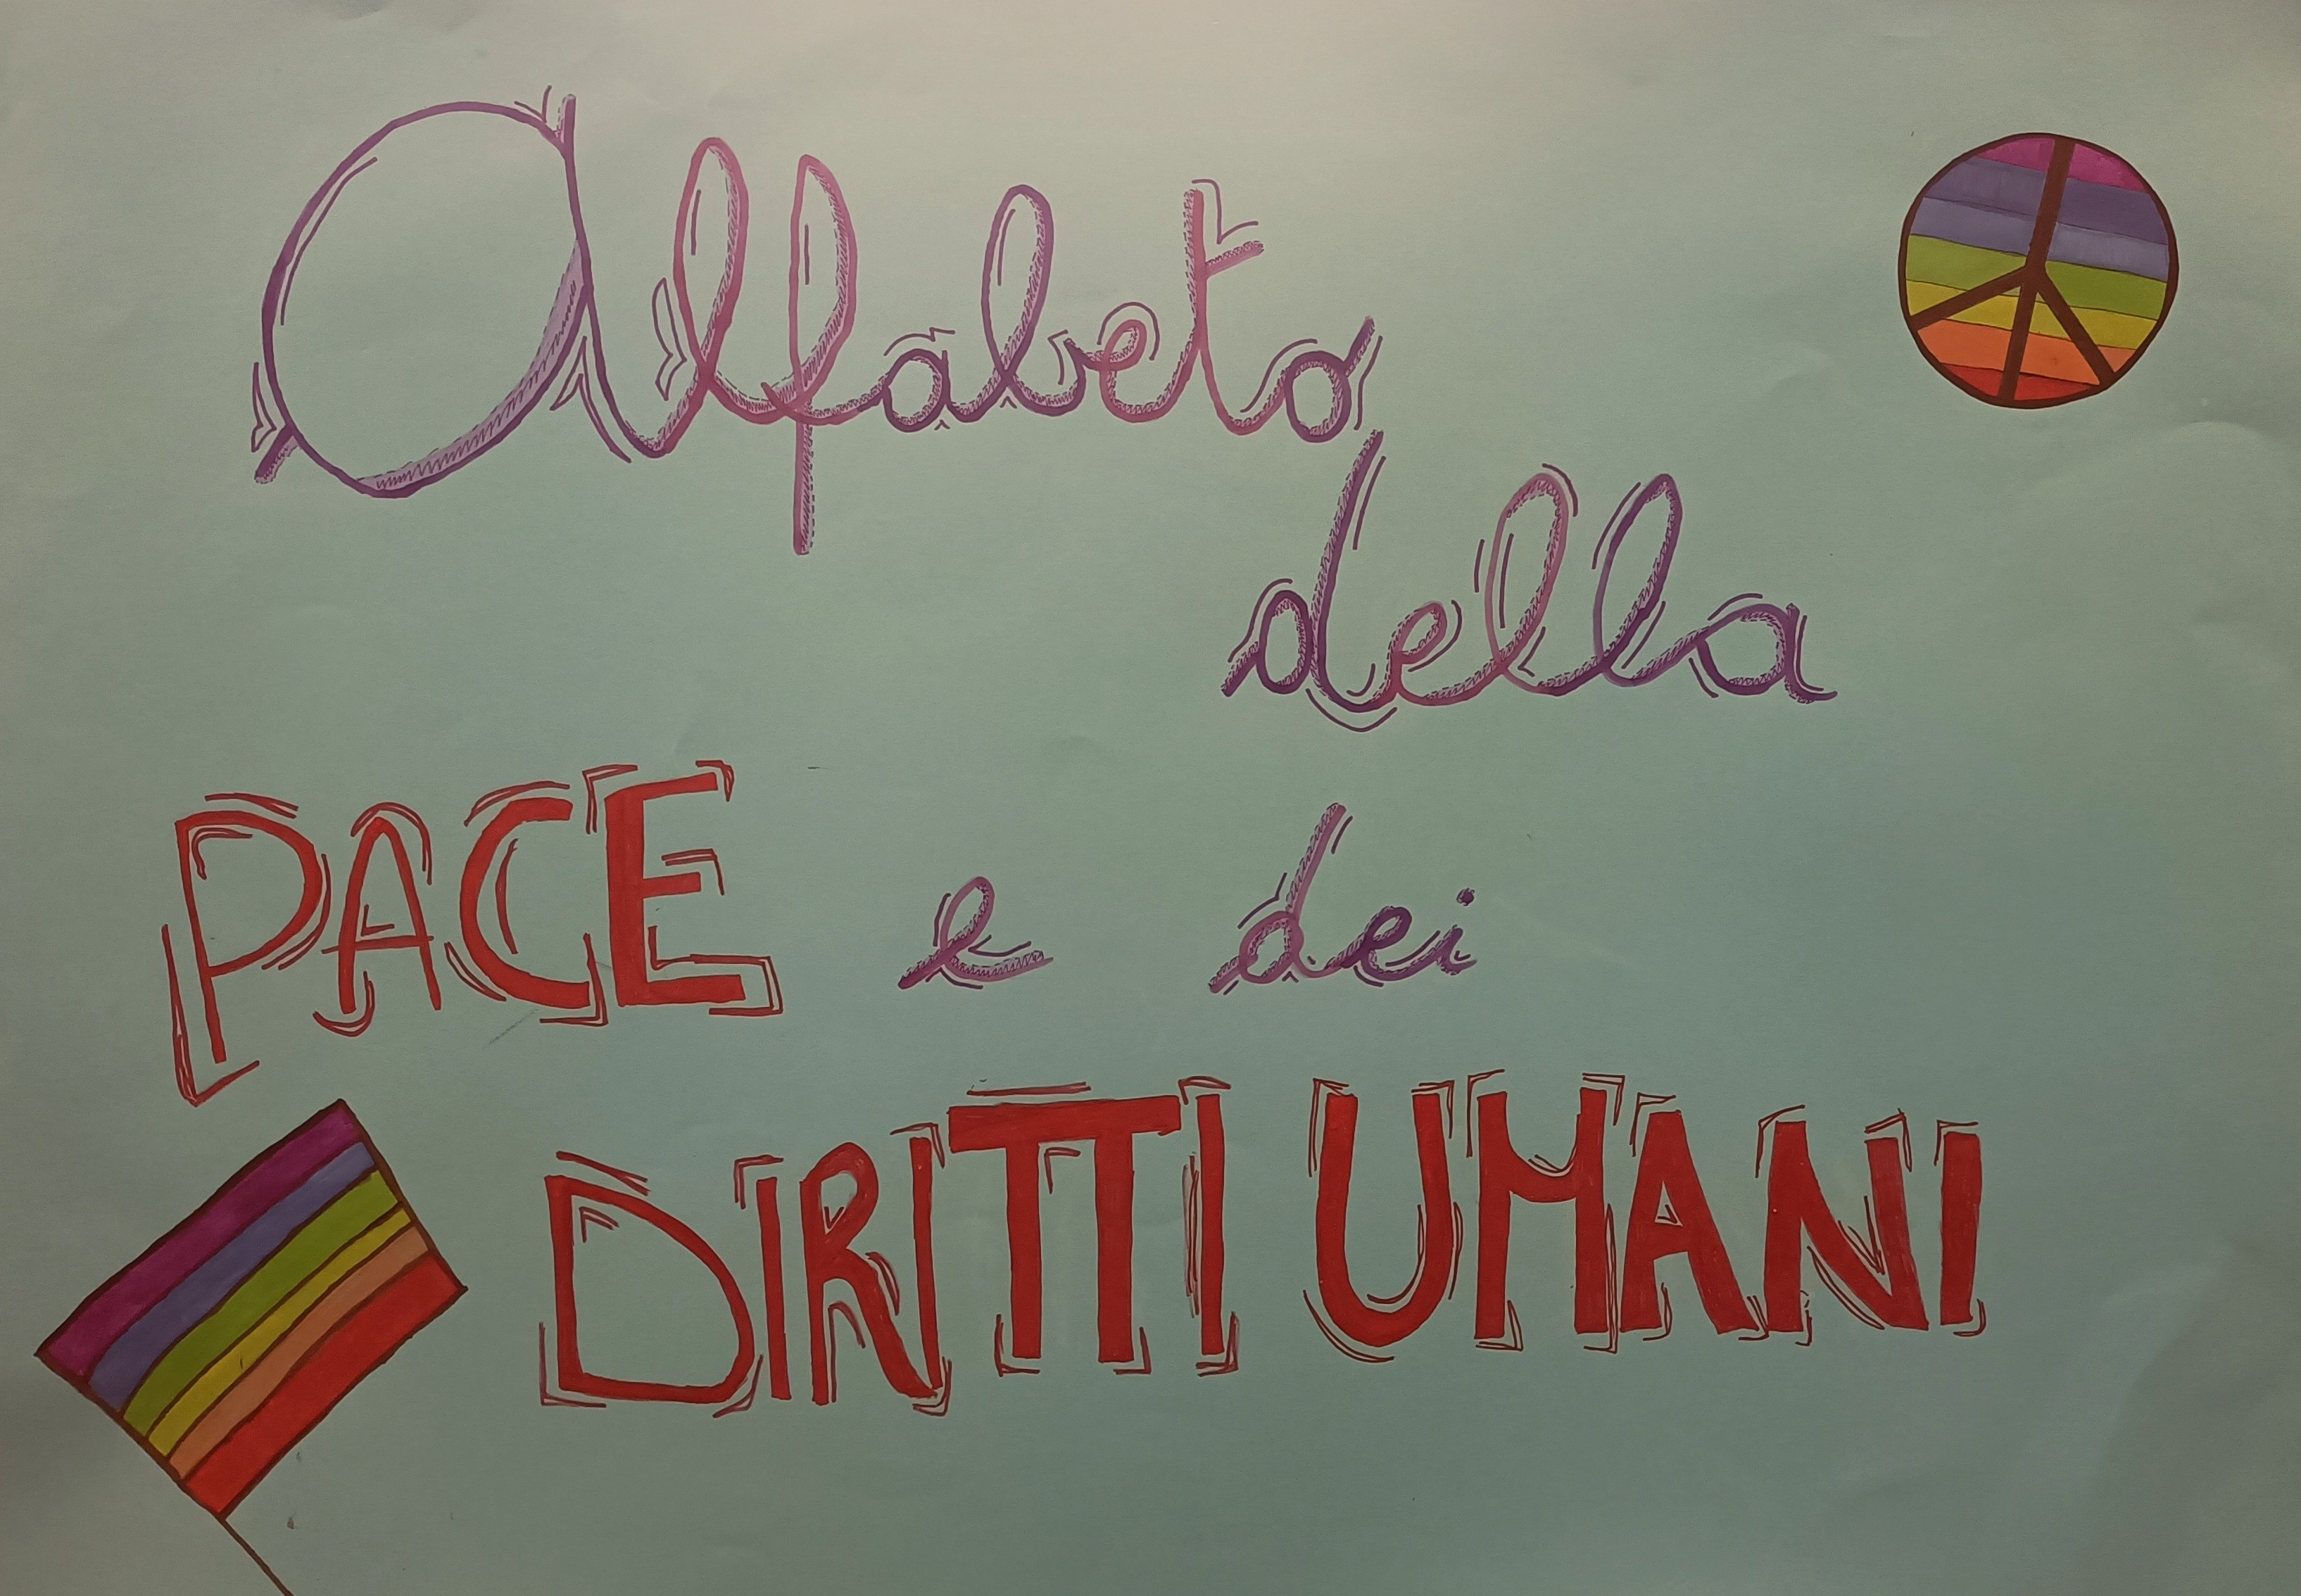 Alfabeto
della
PACE e dei
DIRITTI UMANI